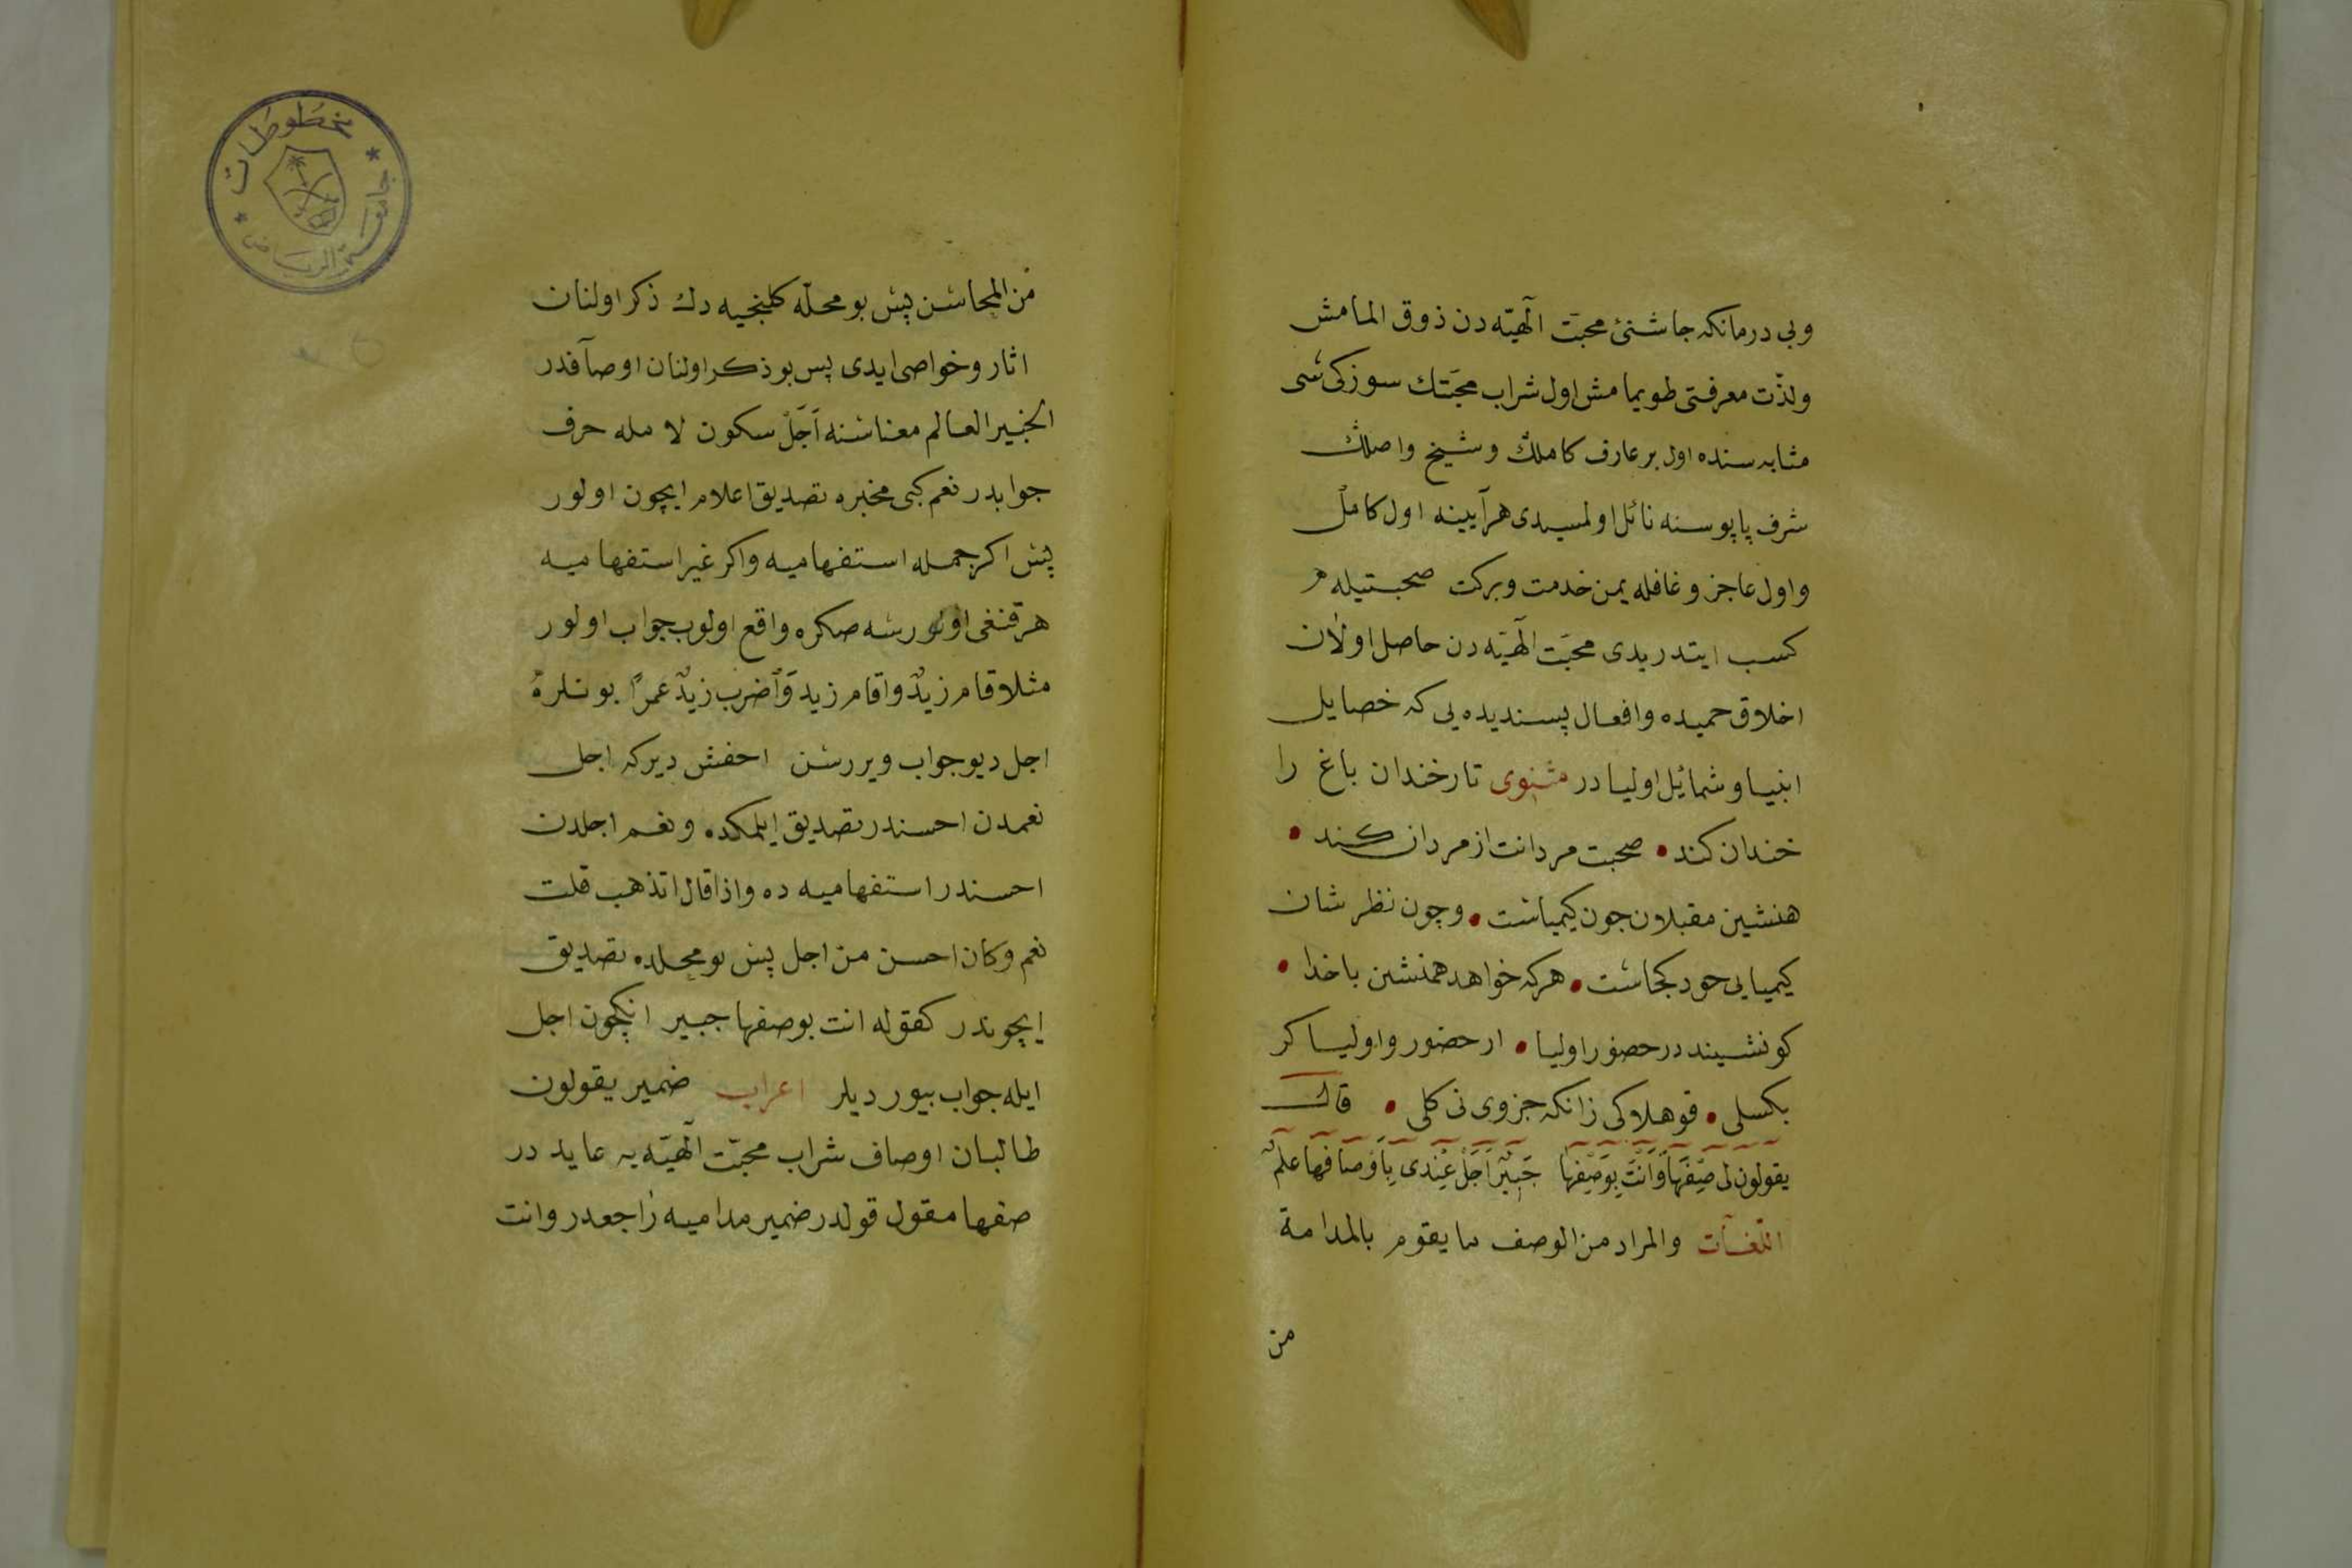 وبى درمانكه جاشنئ محبت آلهيّه دن ذوق المامش
ولذّت معرفتى طويمامش اول شراب محبّتك سوزكى شى
مثابه سنده اول بر عارف كاملك وشيخ واصلك
شرف پاپوسنه نائل اولسيدى هرآيينه اول كامل
واول عاجز وغافله يمن خدمت وبركت صحبتيله
كسب ايتدريدى محبّت آلهيّه دن حاصل اولان
اخلاق حميده وافعال پسنديده يى كه خصايل
انبيا وشمائل اوليادر مثنوى نار خندان باغ را
خندان كند • صحبت مردانت از مردان كند •
همنشين مقبلان جون كيمياست • وچون نظر شان
كيميايى خود كجاست • هركه خواهد همنشين با خدا •
كو نشيند در حضور اوليا • از حضور واوليا كر
بكسلى • تو هلاكى زانكه جزوى نى كلى • قال
يقولون لى صِفْهَا وَاَنْتَ بِوَصْفِهَا خَبِيْرٌ اَجَلْ عِنْدِى بِاَوْصَافِهَا عِلْمٌ
اللغات والمراد من الوصف ما يقوم بالمدامة
من
من المحاسن پس بو محلّه كلنجيه دك ذكر اولنان
اثار وخواصى ايدى پس بو ذكر اولنان اوصافدر
الخبير العالم معناسنه اَجَلْ سكون لامله حرف
جوابدر نعم كبى مخبره تصديق اعلام ايچون اولور
پس اكر جمله استفهاميه واكر غير استفهاميه
هر قنغى اولورسه صكره واقع اولوب جواب اولور
مثلا قام زيدٌ واقام زيد وَاَضرب زيدٌ عمرًا بونلره
اجل ديو جواب ويررسن اخفش ديركه اجل
نعمدن احسندر تصديق ايلمكده ونعم اجلدن
احسندر استفهاميه ده واذا قال اتذهب قلت
نعم وكان احسن من اجل پس بو محلده تصديق
ايچوندر كقوله انت بوصفها خبير انكچون اجل
ايله جواب بيورديلر اعراب ضمير يقولون
طالبان اوصاف شراب محبّت آلهيّه يه عايد در
صفها مقول قولدر ضمير مداميه راجعدر وانت
مخطوطات
جامعة الرياض